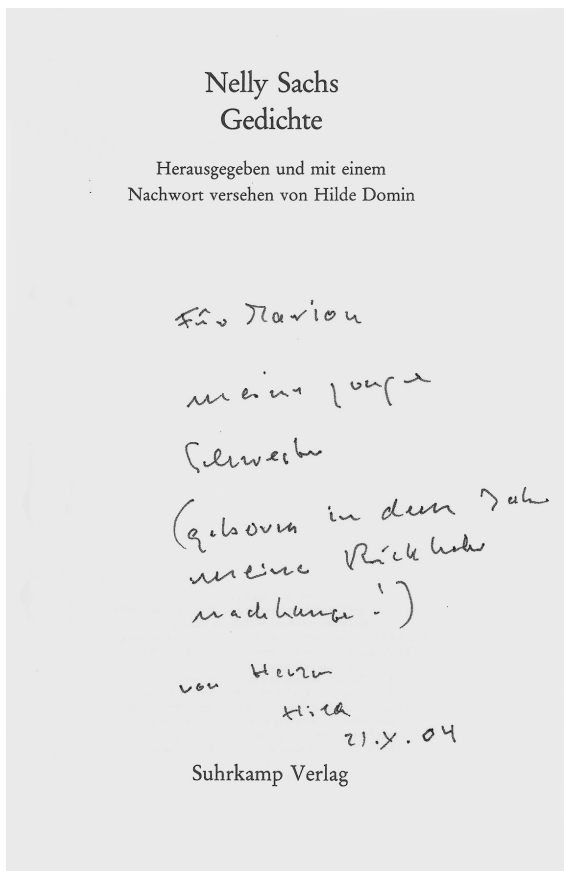 Nelly Sachs
Gedichte
Herausgegeben und mit einem
Nachwort versehen von Hilde Domin
Für Marion
meine junge
Schwester
(geboren in dem Jahr
meiner Rückkehr
!)
von Herzen
Hilde
21.X.04
Suhrkamp Verlag